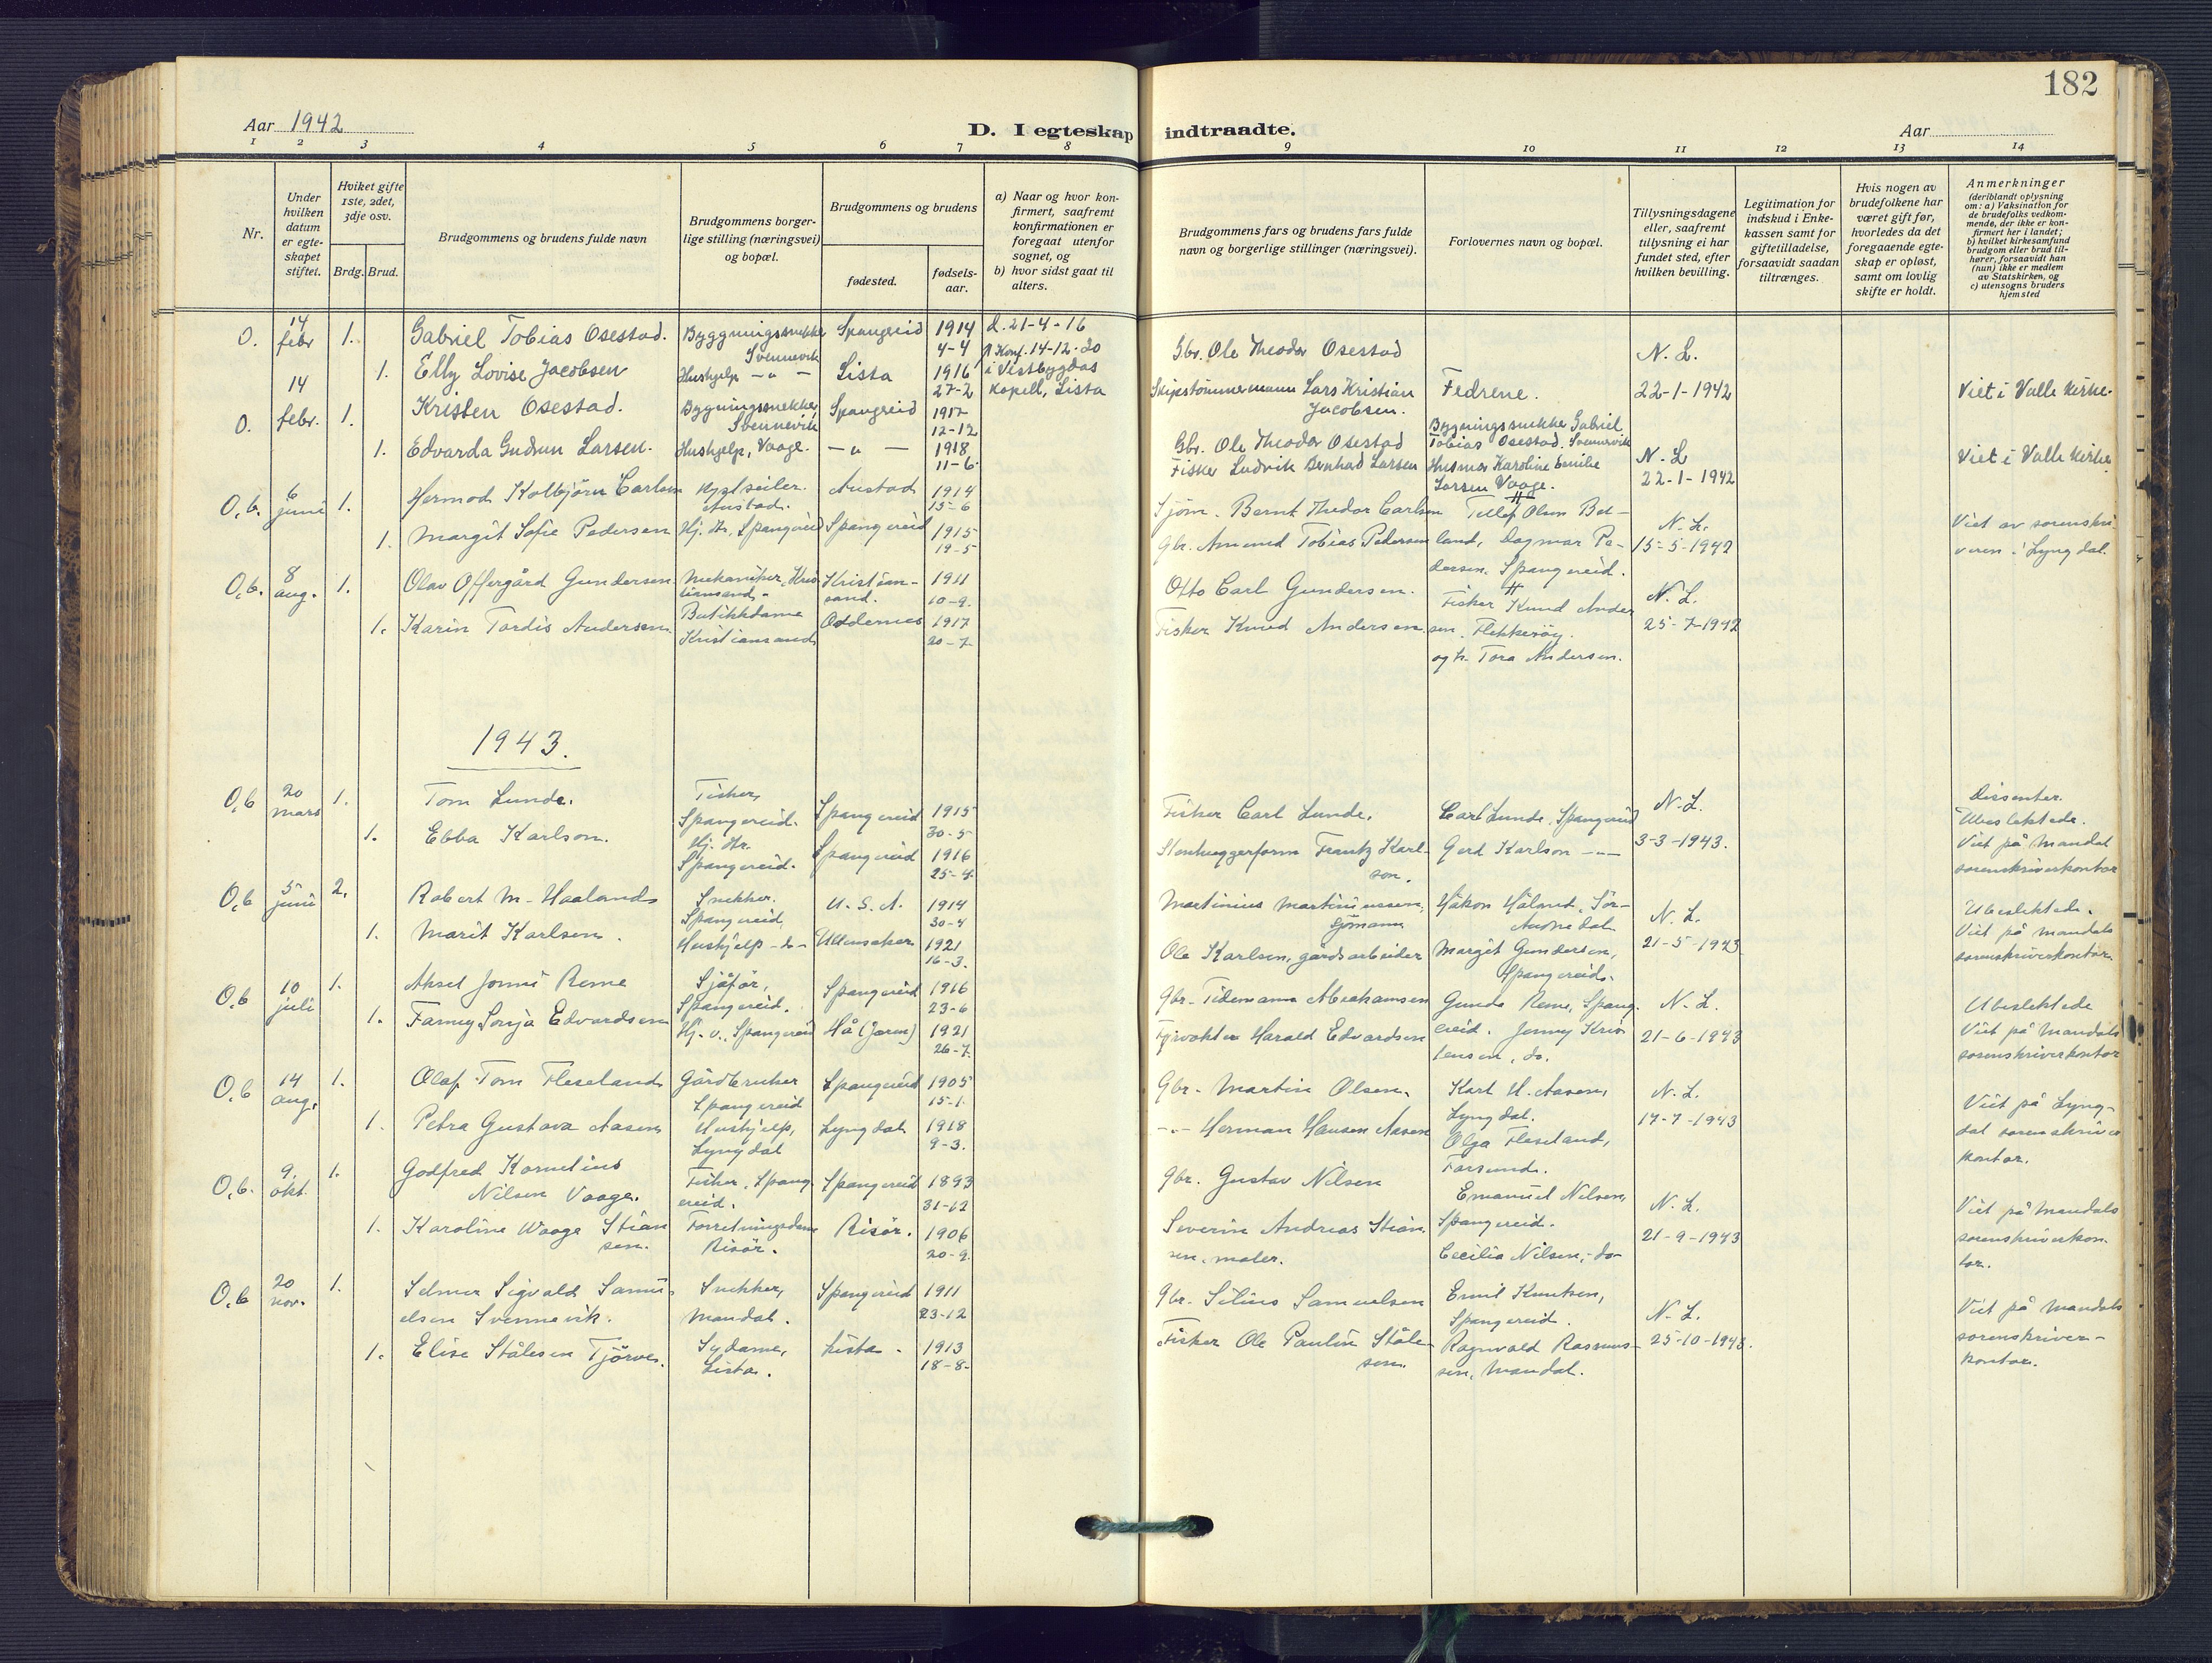 182
Aar 1942
D. I egteskap indtraadte.
Aar
1 2 3 4 5 6 7 8 9 10 11 12 13 14
Nr.
Under hvilken datum er egteskapet stiftet.
Hviket gifte 1ste, 2det, 3dje osv.
Brdg. Brud.
Brudgommens og brudens fulde navn
Brudgommens borgerlige stilling (næringsvei) og bopæl.
Brudgommens og brudens
fødested.
fødselsaar.
a) Naar og hvor konfirmert, saafremt konfirmationen er foregaat utenfor sognet, og
b) hvor sidst gaat til alters.
Brudgommens fars og brudens fars fulde navn og borgerlige stillinger (næringsvei).
Forlovernes navn og bopæl.
Tillysningsdagene eller, saafremt tillysning ei har fundet sted, efter hvilken bevilling.
Legitimation for indskud i Enkekassen samt for giftetilladelse, forsaavidt saadan tiltrænges.
Hvis nogen av brudefolkene har været gift før, hvorledes da det foregaaende egteskap er opløst, samt om lovlig skifte er holdt.
Anmerkninger
(deriblandt oplysning om: a) Vaksination for de brudefolks vedkommende, der ikke er konfirmert her i landet; b) hvilket kirkesamfund brudgom eller brud tilhører, forsaavidt han (hun) ikke er medlem av Statskirken, og c) utensogns bruders hjemsted
O. 14 febr 1. Gabriel Tobias Osestad. Byggningssnekker Svennevik Spangereid 1914 4-4 d. 21-4-16
Gbr. Ole Theodor Osestad N. L.
1. Elly Lovise Jacobsen Hushjelp — " — Lista 1916 27-2 Konf. 14-12-30 i Vestbygdas Kapell, Lista
Skipstømmermann Lars Kristian Jacobsen. Fedrene. 22-1-1942 Viet i Valle kirke.
O. 14 febr. 1. Kristen Osestad. Bygningssnekker, Svennevik Spangereid 1917 12-12
Gbr. Ole Theodor Osestad Bygningssnekker Gabriel Tobias Osestad. Svennevik N. L Viet i Valle kirke.
1. Edvarda Gudrun Larsen. Hushjelp, Vaage. — " — 1918 11-6
Fisker Ludvik Bernhard Larsen Husmor Karoline Emilie Larsen Vaage. 22-1-1942
O. b. 6 juni 1. Hermod Kolbjörn Carlsen Austad. Austad 1914 15-6
Sjøm. Bernt Thedor Carlsen Tellef Olsen Bel- N. L.
1. Margit Sofie Pedersen Hj. dtr, Spangereid Spangereid 1915 19-5
gbr. Amund Tobias Pedersen land, Dagmar Pedersen. Spangereid. 15-5-1942 Viet av sorenskriveren i Lyngdal.
O. b. 8 aug. 1. Olav Offergård Gundersen Mekaniker, Kristiansand. Kristiansand. 1911 10-9.
Otto Carl Gundersen. Fisker Knud Andersen. Flekkerøy. N. L.
1. Karin Tordis Andersen. Butikkdame Kristiansand Oddernes 1917 20-7.
Fisker Knud Andersen og h. Tora Andersen. 25-7-1942
1943.
O, b 20 mars 1. Tom Lunde. Fisker, Spangereid. Spangereid 1915 30-5
Fisker Carl Lunde. Carl Lunde. Spangereid N. L. Dissenter. Ubeslektede.
1. Ebba Karlson. Hj. dtr. Spangereid. Spangereid 1916 25-4.
Stenhuggerform Frantz Karlson. Gerd Karlson — " — 3-3-1943. Viet på Mandal sorenskriverkontor
O, b 5 juni 2. Robert M. Haaland Snekker. Spangereid, U. S. A. 1914 30-4
Martinius Martiniussen, sjømann Håkon Håland, Sör-Audnedal N. L. Ubeslektede.
1. Marit Karlsen. Hushjelp -do- Ullensaker 1921 16-3.
Ole Karlsen, gårdsarbeider Margit Gundersen, Spangereid. 21-5-1943 Viet på Mandals sorenskriverkontor.
O, b 10 juli 1. Aksel Jonni Reme Sjåför, Spangereid. Spangereid 1916 23-6
Gbr. Tidemann Abrahamsen Gunda Reme, Spangereid. N. L. Ubeslektede
1. Fanny Sonja Edvardsen Hj. v., Spangereid Hå (Jæren) 1921 26-7.
Fyrvokter Harald Edvardsen Jenny Kristensen, do. 21-6-1943 Viet på Mandals sorenskriverkontor
O, b 14 aug. 1. Olaf Tom Fleseland Gårdbruker Spangereid Spangereid 1905 15-1.
Gbr. Martin Olsen. Karl H. Aasen, Lyngdal. N. L.
1. Petra Gustava Aasen Hushjelp, Lyngdal Lyngdal 1918 9-3.
-"- Herman Hansen Aasen Olga Fleseland, Farsund. 17-7-1943 Viet på Lyngdal sorenskriverkontor.
O, b. 9. okt. 1. Godfred Kornelius Nilsen Vaage. Fisker, Spangereid. Spangereid 1893 31-12
gbr. Gustav Nilsen Emanuel Nilsen, Spangereid. N. L.
1. Karoline Waage Stiansen. Forretningsdame Risör. Risör. 1906 20-9.
Severin Andreas Stiansen, maler. Cecilia Nilsen, -do- 21-9-1943 Viet på Mandals sorenskriverkontor.
O, b 20 nov. 1. Selmer Sigvald Samuelsen Svennevik. Snekker, Mandal. Spangereid 1911 23-12
Gbr. Silius Samuelsen Emil Knutsen, Spangereid. N. L.
1. Elise Stålesen Tjörve. Sydame, Lista. Lista. 1913 18-8.
Fisker Ole Paulin Stålesen. Ragnvald Rasmussen, Mandal. 25-10-1943. Viet på Mandals sorenskriverkontor.